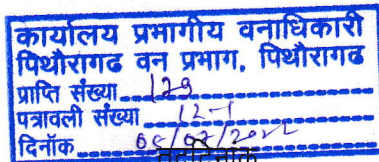 कार्यालय प्रभागीय वनाधिकारी
पिथौरागढ वन प्रभाग, पिथौरागढ
प्राप्ति संख्या 129
पत्रावली संख्या 12-1
दिनॉक
तददिनांक